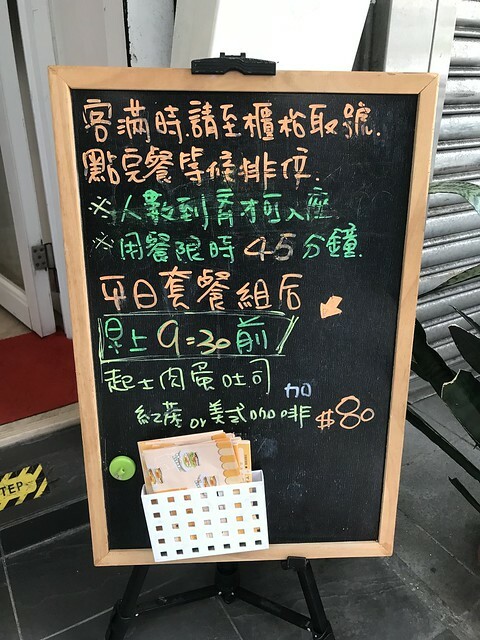 客滿時請至櫃枱取號.
點完餐等候排位.
※人數到齊才可入座
※用餐限時 45 分鐘.
平日套餐組后
早上 9:30 前
起士肉蛋吐司 加
紅茶 or 美式咖啡 $80
STEP